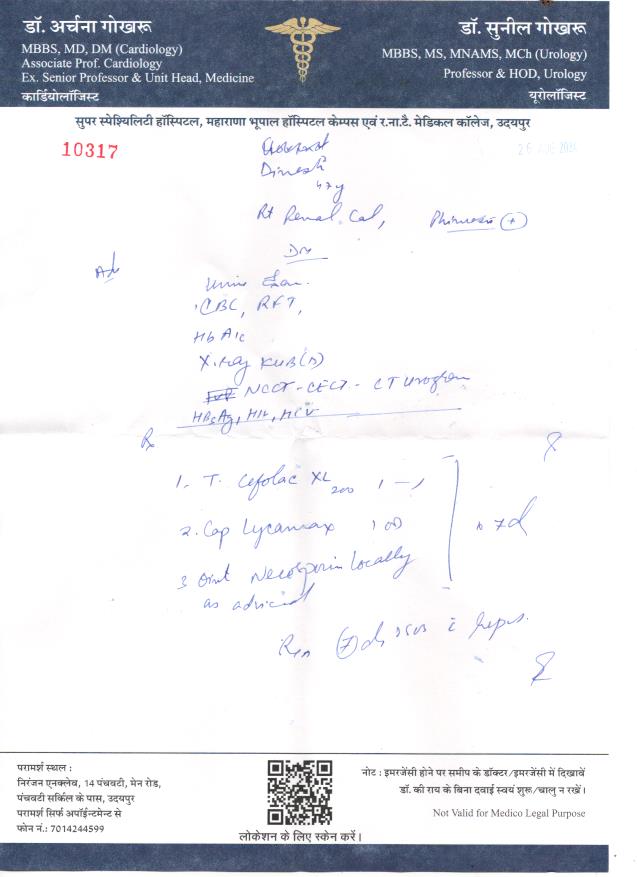 डॉ. अर्चना गोखरू
MBBS, MD, DM (Cardiology)
Associate Prof. Cardiology
Ex. Senior Professor & Unit Head, Medicine
कार्डियोलॉजिस्ट
डॉ. सुनील गोखरू
MBBS, MS, MNAMS, MCh (Urology)
Professor & HOD, Urology
यूरोलॉजिस्ट
सुपर स्पेश्यिलिटी हॉस्पिटल, महाराणा भूपाल हॉस्पिटल केम्पस एवं र.ना.टै. मेडिकल कॉलेज, उदयपुर
10317
Dinesh
47y
Rt Renal Cal, Phimosis (+)
DM
Adv
Urine Exam.
CBC, RFT,
HbA1c
X-ray KUB(A)
NCCT-CECT-CT Urogram
HBsAg, HIV, HCV
Rx
1. T. Cefolac XL 200 1-1
2. Cap Lycamax 1 OD
3 Oint Neosporin Locally
as advised
x 7d
परामर्श स्थल :
निरंजन एनक्लेव, 14 पंचवटी, मेन रोड,
पंचवटी सर्किल के पास, उदयपुर
परामर्श सिर्फ अपॉईन्टमेन्ट से
फोन नं.: 7014244599
लोकेशन के लिए स्केन करें।
नोट : इमरजेंसी होने पर समीप के डॉक्टर/इमरजेंसी में दिखावें
डॉ. की राय के बिना दवाई स्वयं शुरू/चालु न रखें।
Not Valid for Medico Legal Purpose